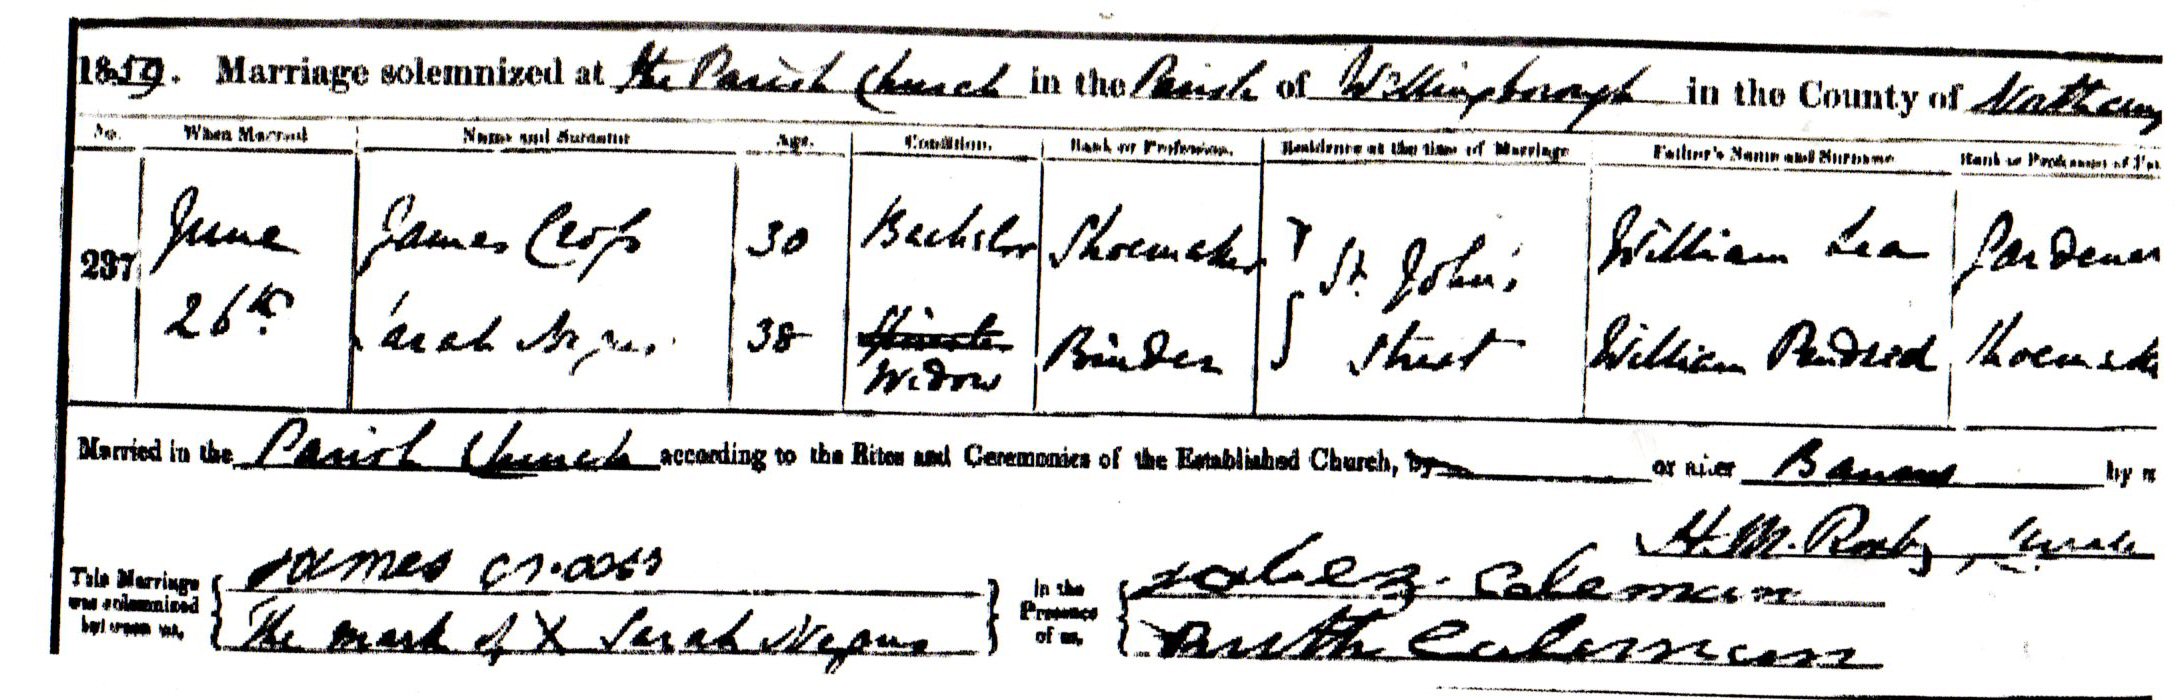 1859. Marriage solemnized at the Parish Church in the Parish of Wellingborough in the County of Northamp
No. When Married Name and Surname Age. Condition. Rank or Profession. Residence at the time of Marriage Father's Name and Surname Rank or Profession of Fat
237 June James Cross 30 Bachelor Shoemaker St. John's William Lea Gardener
26th Sarah Negus 38 Spinster Binder Street William Pendred Shoemake
Widow
Married in the Parish Church according to the Rites and Ceremonies of the Established Church, by or after Banns by m
H. M. Roxby, Curate
This Marriage was solemnized between us, James Cross In the Presence of us, Jabez Coleman
The mark of X Sarah Negus Ruth Coleman